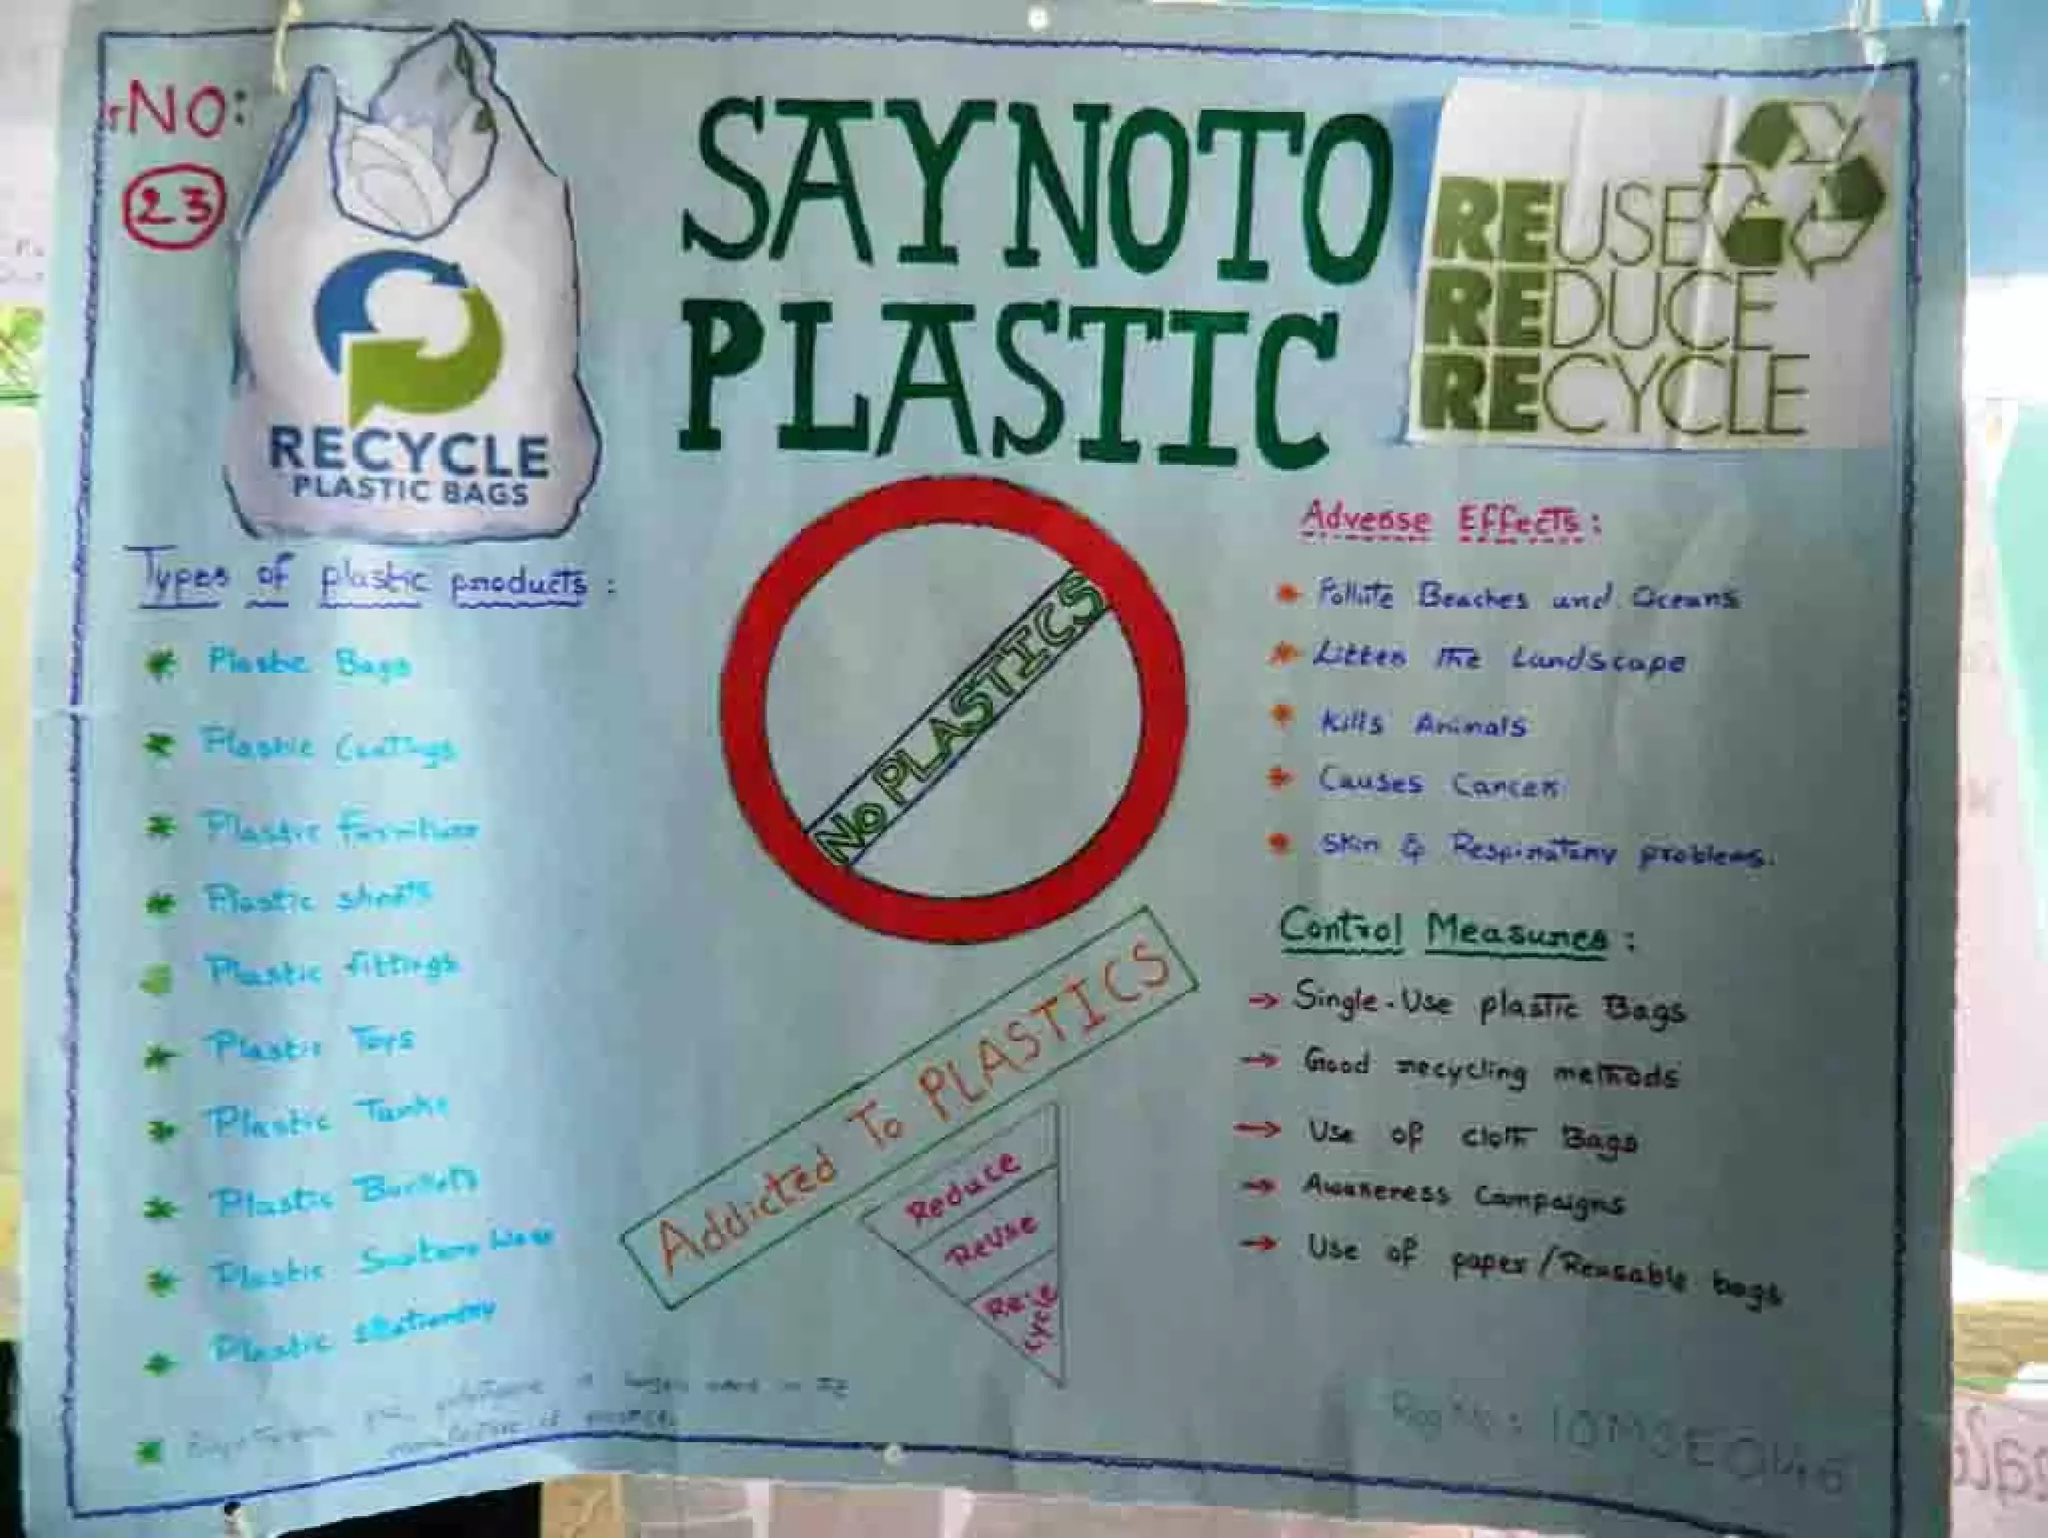 rNO:
23
RECYCLE
PLASTIC BAGS
SAY NO TO
PLASTIC
REUSE
REDUCE
RECYCLE
Types of plastic products:
Plastic Bags
Plastic Coatings
Plastic furniture
Plastic sheets
Plastic fittings
Plastic Toys
Plastic Tanks
Plastic Buckets
Plastic
Plastic stationary
NO PLASTICS
Addicted To PLASTICS
Reduce
Reuse
Recycle
Adverse Effects:
Pollute Beaches and Oceans
Litter the Landscape
Kills Animals
Causes Cancer
Skin & Respiratory problems.
Control Measures:
Single-Use plastic Bags
Good recycling methods
Use of cloth Bags
Awareness Campaigns
Use of paper/Reusable bags
Reg No: